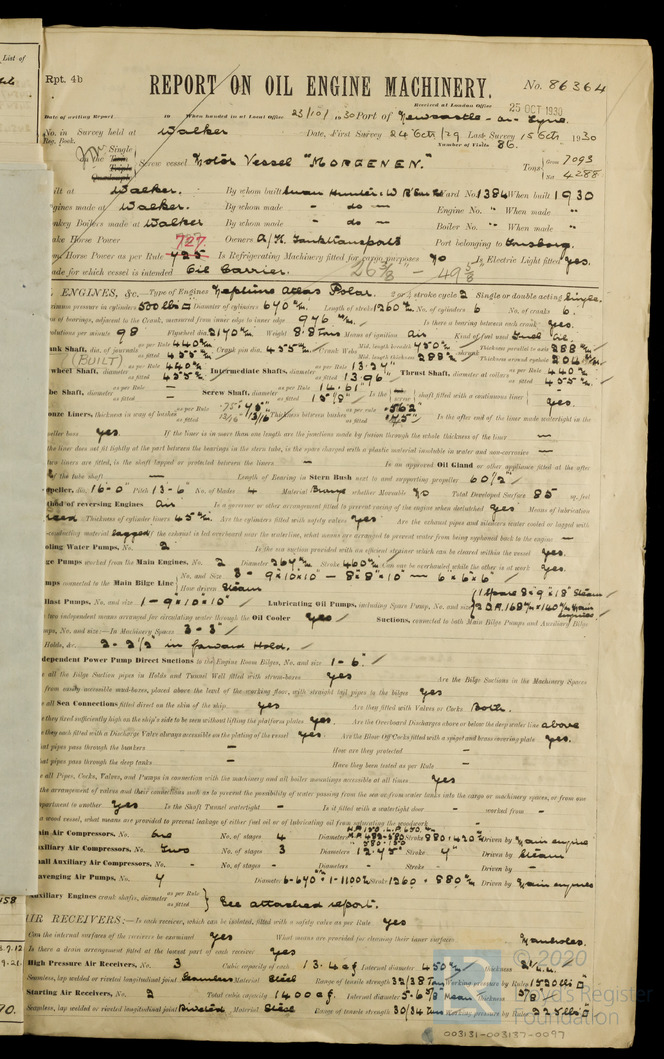 List of
Rpt. 4b
REPORT ON OIL ENGINE MACHINERY. No. 86364
Received at London Office 25 OCT 1930
Date of writing Report 19 When handed in at Local Office 23/10/1930 Port of Newcastle-on-Tyne.
No. in Survey held at Walker Date, First Survey 24 Oct/29 Last Survey 15 Oct 1930
Reg. Book. Number of Visits 86.
on the Single Screw vessel Motor Vessel "MORGENEN." Tons Gross 7093
Net 4288
Built at Walker. By whom built Swan Hunter & W. R. Yard No. 1384 When built 1930
Engines made at Walker. By whom made - do - Engine No. " When made "
Donkey Boilers made at Walker By whom made - do - Boiler No. " When made "
Brake Horse Power Owners A/S. Tanktransport Port belonging to Tonsberg.
Horse Power as per Rule 727 Is Refrigerating Machinery fitted for cargo purposes No Is Electric Light fitted Yes.
Trade for which vessel is intended Oil Carrier. 26 3/8 - 49 5/8
OIL ENGINES, &c. Type of Engines Neptune Atlas Polar. 2 or 4 stroke cycle 2 Single or double acting Single.
Maximum pressure in cylinders 500 lbs Diameter of cylinders 640 m/m. Length of stroke 1260 m/m. No. of cylinders 6 No. of cranks 6.
of bearings, adjacent to the Crank, measured from inner edge to inner edge 976 m/m. Is there a bearing between each crank Yes.
Revolutions per minute 98 Flywheel dia. 2140 m/m. Weight 8.8 tons Means of ignition Air Kind of fuel used Diesel Oil.
Crank Shaft, dia. of journals as per Rule 440 m/m as fitted 455 m/m Crank pin dia. 455 m/m. Crank Webs Mid. length breadth 780 m/m Mid. length thickness 288 m/m Thickness parallel to axis 288 m/m Thickness around eyehole 204 m/m
(BUILT)
Flywheel Shaft, as per Rule 440 m/m as fitted 455 m/m Intermediate Shafts, diameter as per Rule 13.27" as fitted 13.96" Thrust Shaft, diameter at collars as per Rule 440 m/m as fitted 455 m/m
Tube Shaft, as per Rule - as fitted - Screw Shaft, diameter as per Rule 14.61" as fitted 15 1/8" Is the shaft fitted with a continuous liner Yes.
Bronze Liners, thickness in way of bushes as per Rule .75" Thickness between bushes as per rule .562" as fitted .75" Is the after end of the liner made watertight in the
propeller boss Yes. If the liner is in more than one length are the junctions made by fusion through the whole thickness of the liner -
the liner does not fit tightly at the part between the bearings in the stern tube, is the space charged with a plastic material insoluble in water and non-corrosive -
two liners are fitted, is the shaft lapped or protected between the liners - Is an approved Oil Gland or other appliance fitted at the after
of the tube shaft - Length of Bearing in Stern Bush next to and supporting propeller 60 1/2"
Propeller, dia. 16-0" Pitch 13-6" No. of blades 4 Material Bronze whether Moveable No Total Developed Surface 85 sq. feet
Method of reversing Engines Air Is a governor or other arrangement fitted to prevent racing of the engine when declutched Yes Means of lubrication
Forced. Thickness of cylinder liners 45 m/m. Are the cylinders fitted with safety valves Yes. Are the exhaust pipes and silencers water cooled or lagged with
non-conducting material lagged. If the exhaust is led overboard near the waterline, what means are arranged to prevent water from being syphoned back to the engine -
Cooling Water Pumps, No. 2 Is the sea suction provided with an efficient strainer which can be cleared within the vessel Yes.
Bilge Pumps worked from the Main Engines, No. 2 Diameter 267 m/m. Stroke 460 m/m. Can one be overhauled while the other is at work Yes.
Pumps connected to the Main Bilge Line No. and Size 3 - 9"x10"x10" - 8"x8"x10" - 6"x6"x6"
How driven Steam
Ballast Pumps, No. and size 1 - 9"x10"x10" Lubricating Oil Pumps, including Spare Pump, No. and size
two independent means arranged for circulating water through the Oil Cooler Yes Suctions, connected to both Main Bilge Pumps and Auxiliary Bilge
Pumps, No. and size:-In Machinery Spaces 3 - 3"
Holds, &c. 2 - 2 1/2" in forward Hold.
Independent Power Pump Direct Suctions to the Engine Room Bilges, No. and size 1 - 6".
all the Bilge Suction pipes in Holds and Tunnel Well fitted with strum-boxes Yes Are the Bilge Suctions in the Machinery Spaces
from easily accessible mud-boxes, placed above the level of the working floor, with straight tail pipes to the bilges Yes
all Sea Connections fitted direct on the skin of the ship Yes Are they fitted with Valves or Cocks Both.
they fixed sufficiently high on the ship's side to be seen without lifting the platform plates Yes. Are the Overboard Discharges above or below the deep water line above
they each fitted with a Discharge Valve always accessible on the plating of the vessel Yes. Are the Blow Off Cocks fitted with a spigot and brass covering plate Yes.
What pipes pass through the bunkers - How are they protected -
What pipes pass through the deep tanks - Have they been tested as per Rule -
all Pipes, Cocks, Valves, and Pumps in connection with the machinery and all boiler mountings accessible at all times Yes
the arrangement of valves and their connections such as to prevent the possibility of water passing from the sea or from water tanks into the cargo or machinery spaces, or from one
compartment to another Yes Is the Shaft Tunnel watertight - Is it fitted with a watertight door - worked from -
a wood vessel, what means are provided to prevent leakage of either fuel oil or of lubricating oil from saturating the woodwork -
Main Air Compressors, No. One No. of stages 4 Diameters Stroke 880 & 420 m/m Driven by Main engine
Auxiliary Air Compressors, No. Two No. of stages 3 Diameters Stroke 4" Driven by Steam
Small Auxiliary Air Compressors, No. - No. of stages - Diameters - Stroke - Driven by -
Scavenging Air Pumps, No. 4 Diameter Stroke 1260 & 880 m/m Driven by Main engines
Auxiliary Engines crank shafts, diameter as per Rule as fitted See attached report.
AIR RECEIVERS:-Is each receiver, which can be isolated, fitted with a safety valve as per Rule Yes
Can the internal surfaces of the receivers be examined Yes What means are provided for cleaning their inner surfaces Manholes.
Is there a drain arrangement fitted at the lowest part of each receiver Yes
High Pressure Air Receivers, No. 3 Cubic capacity of each 13.4 cf Internal diameter 450 m/m thickness
Seamless, lap welded or riveted longitudinal joint Seamless Material Steel Range of tensile strength 32/38 Tons Working pressure by Rules 1520 lbs
Starting Air Receivers, No. 2 Total cubic capacity 1400 cf. Internal diameter 5-6 5/8" Mean thickness
Seamless, lap welded or riveted longitudinal joint Riveted Material Steel Range of tensile strength 30/34 Tons Working pressure by Rules 225 lbs
© 2020
Lloyd's Register
Foundation
003131-003137-0097